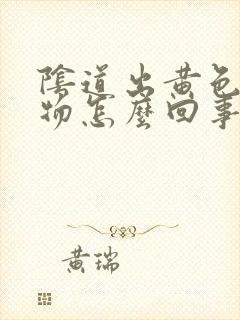 陰道出黃色
物怎麼回事
黃瑞